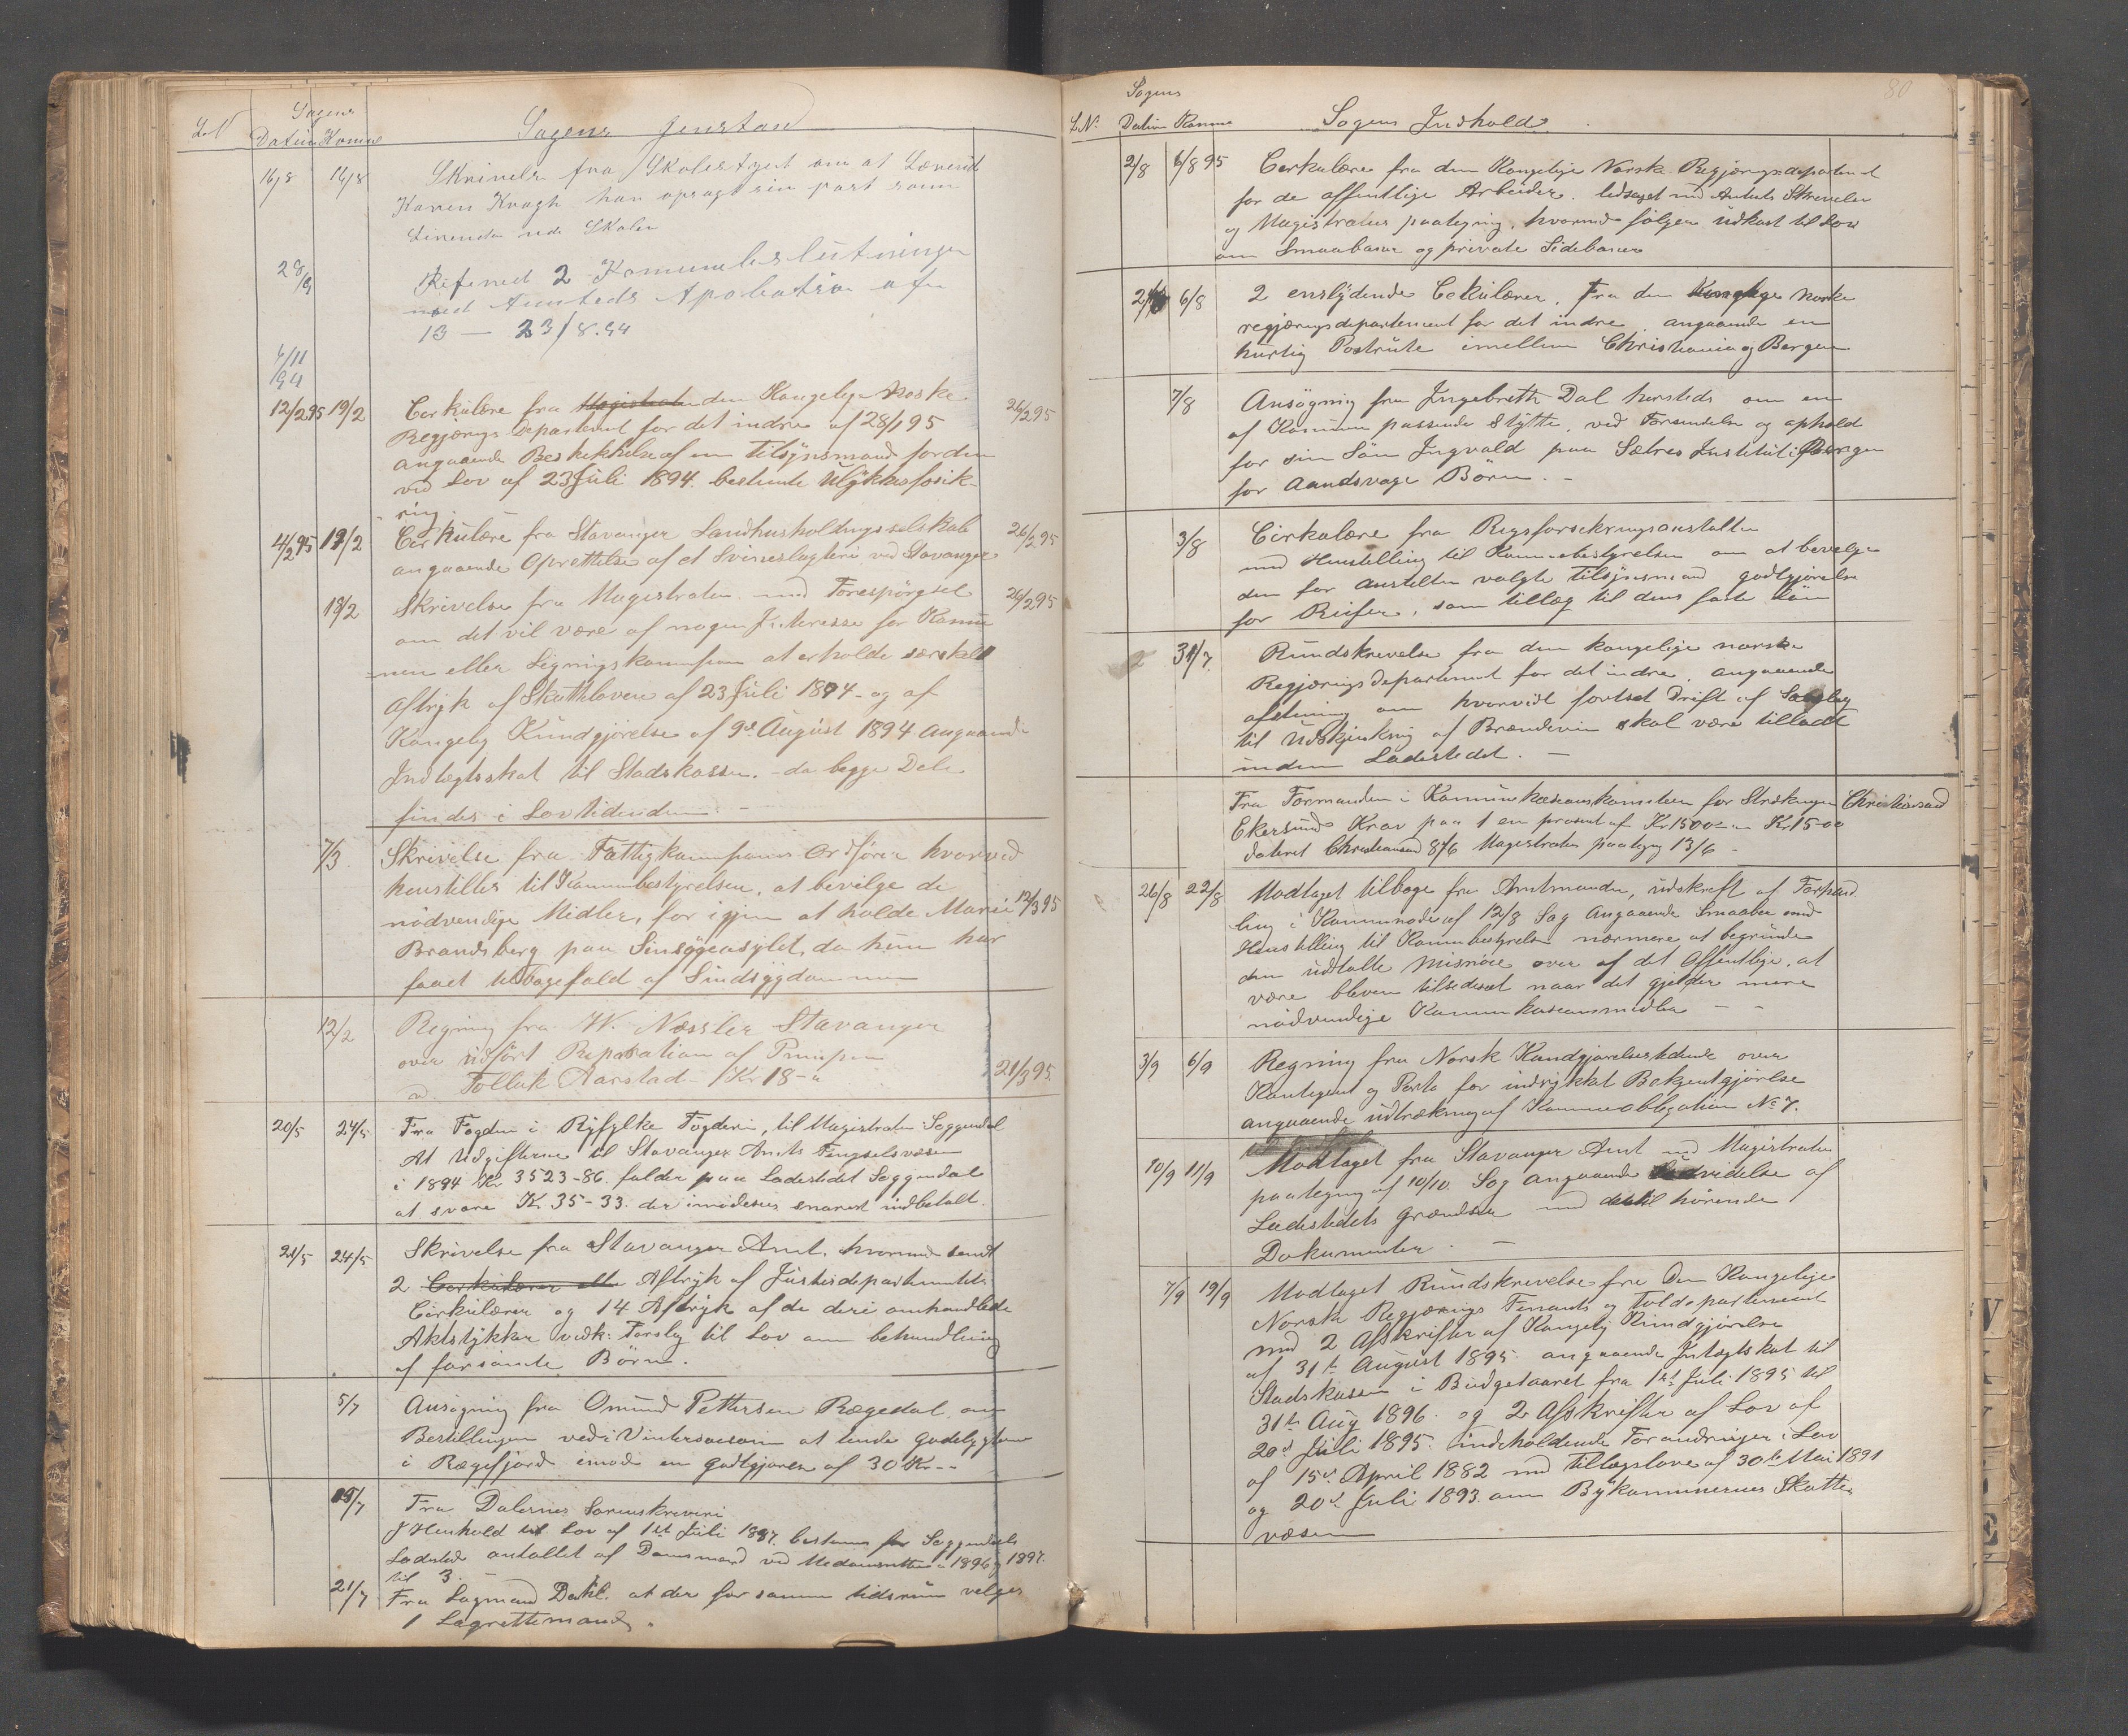 Sagens
L.N. Datum Komne
Sagens Gjenstand
16/8 16/8 Skrivelse fra Skolestyret om at Lærerinde
Karen Kragh har opsagt sin post som
Lærerinde ved Skolen
28/9 2 Komunebeslutninger
med Amtets Aprobation af
13 — 23/8.94
7/11 94
12/2 95 19/2 Cirkulære fra Magistraten den Kongelige Norske 26/2 95
Regjerings Departement for det indre af 28/1 95
angaaende Beskikkelse af en Tilsynsmand for den
ved Lov af 23 Juli 1894 bestemte Ulykkesforsik-
ring.
4/2 95 19/2 Cirkulære fra Stavanger Landhusholdningsselskab 26/2 95
angaaende Oprettelse af et Svineslagteri ved Stavanger
18/2 Skrivelse fra Magistraten med Forespørgsel 26/2 95
om det vil være af nogen Interesse for Kommu-
nen eller Ligningskommisjonen at erholde særskilt
Aftryk af Skatteloven af 23 Juli 1894 og af
Kongelig Kundgjørelse af 9de August 1894 angaaende
Indtægtsskat til Stadskassen. – da begge Dele
findes i Lovtidenden. –
7/3 Skrivelse fra Fattigkommisjonens Ordfører hvorved
henstilles til Kommunebestyrelsen, at bevilge de
nödvendige Midler, for igjen at holde Marie 12/3 95
Brandsberg paa Sinsögeasylet, da hun har
faaet tilbagefald af Sindsÿgdommen
12/2 Regning fra W. Næssler Stavanger
over udfört Reparation af Pumpen
v. Tollak Aarstad – Kr 18 – " 21/3 95
20/5 24/5 Fra Fogden i Ryfylke Fogderi, til Magistraten i Soggendal
At Udgifterne til Stavanger Amts Fengselsvæsen
i 1894 Kr 3523-86. falder paa Ladestedet Soggendal
at svare Kr. 35-33. der imødesees snarest indbetalt.
21/5 24/5 Skrivelse fra Stavanger Amt, hvormed sendt
2 Cirkulærer eller Aftryk af Justisdepartementets
Cirkulærer og 14 Aftryk af de deri omhandlede
Aktstykker vedk: Forslag til Lov om behandling
af forsømte Børn.
5/7 Ansøgning fra Omund Pettersen Rægedal om
Bestillingen ved i Vintersæsonen at tende Gadelygterne
i Rægefjord imod en godtgjørelse af 30 Kr --
15/7 Fra Dalernes Sorenskriveri
I Henhold til Lov af 1st Juli 1887. bestemmes for Soggendals
Ladested antallet af Domsmænd ved Meddomsretten i 1896 & 1897.
til 3.
21/7 Fra Lagmand Dahl. at der for samme tidsrum velges
1 Lagrettemand.
80
Sagens
L.N. Datum Komne Sagens Indhold
2/8 6/8 95 Cirkulære fra den Kongelige Norske Regjeringsdepartement
for de offentlige Arbeider. ledsaget med Amtets Skrivelse
og Magistratens paategning, hvormed følger udkast til Lov
om Smaabaner og private Sidebaner
6/8 2 enslÿdende Cirkulærer. Fra den Kongelige norske
regjeringsdepartement for det indre, angaaende en
hurtig Postrute imellem Christiania og Bergen
7/8 Ansögning fra Ingebreth Dal hersteds om en
af Komunen passende Stÿtte, ved Forsendelse og ophold
for sin Sön Ingvald paa Sæbres Institut i Bergen
for Aandsvage Börn. –
3/8 Cirkulære fra Rigsforsikringsanstalten
med Henstilling til Komunebestyrelsen om at bevilge
den for anstalten valgte tilsÿnsmand godtgjørelse
for Reiser, som tillæg til dens faste Lön
2 31/7 Rundskrivelse fra den kongelige norske
Regjeringsdepartement for det indre, angaaende
afstemning om hvorvidt fortsat Drift af Samlag
til Udskjenkning af Brændevin skal være tilladt
inden Ladestedet. –
Fra Formanden i Komunekasseraskomiteen for Strækningen Christiansand
Ekersund Krav paa 1 en procent af Kr 1500 = Kr 15-00
dateret Christiansand 8/6 Magistratens paategning 13/6 –
26/8 22/8 Modtaget tilbage fra Amtmanden, udskrift af Forhand
ling i Komunemöde af 12/8 Sag angaaende Smaabaner med
Henstilling til Komunebestyrelsen nærmere at begrunde
den udtalte Misnöie over af det Offentlige, at
være bleven tilsidesat naar det gjelder mere
nödvendige Kommunikasjonsmidler – –
3/9 6/9 Regning fra Norsk Kundgjørelsestidende over
Kontigent og Porto for indrykket Bekjentgjørelse
angaaende udtrækning af Komuneobligation No 7.
10/9 11/9 Modtaget fra Stavanger Amt med Magistratens
paategning af 10/10. Sag angaaende Udvidelse af
Ladestedets Grændser med dertil hörende
Dokumenter. –
7/9 19/9 Modtaget Rundskrivelse fra Den Kongelige
Norske Regjerings Finants og Tolddepartement
med 2 Afskrifter af Kongelig Kundgjørelse
af 31te August 1895. angaaende Indtægtskat til
Stadskassen i Budgetaaret fra 1ste Juli 1895 til
31te Aug 1896. og 2 Afskrifter af Lov af
20de Juli 1895. indeholdende Forandringer i Lov
af 15de April 1882 med Tillægslove af 30te Mai 1891
og 20de Juli 1893. om Bÿkommunernes Skatte-
væsen